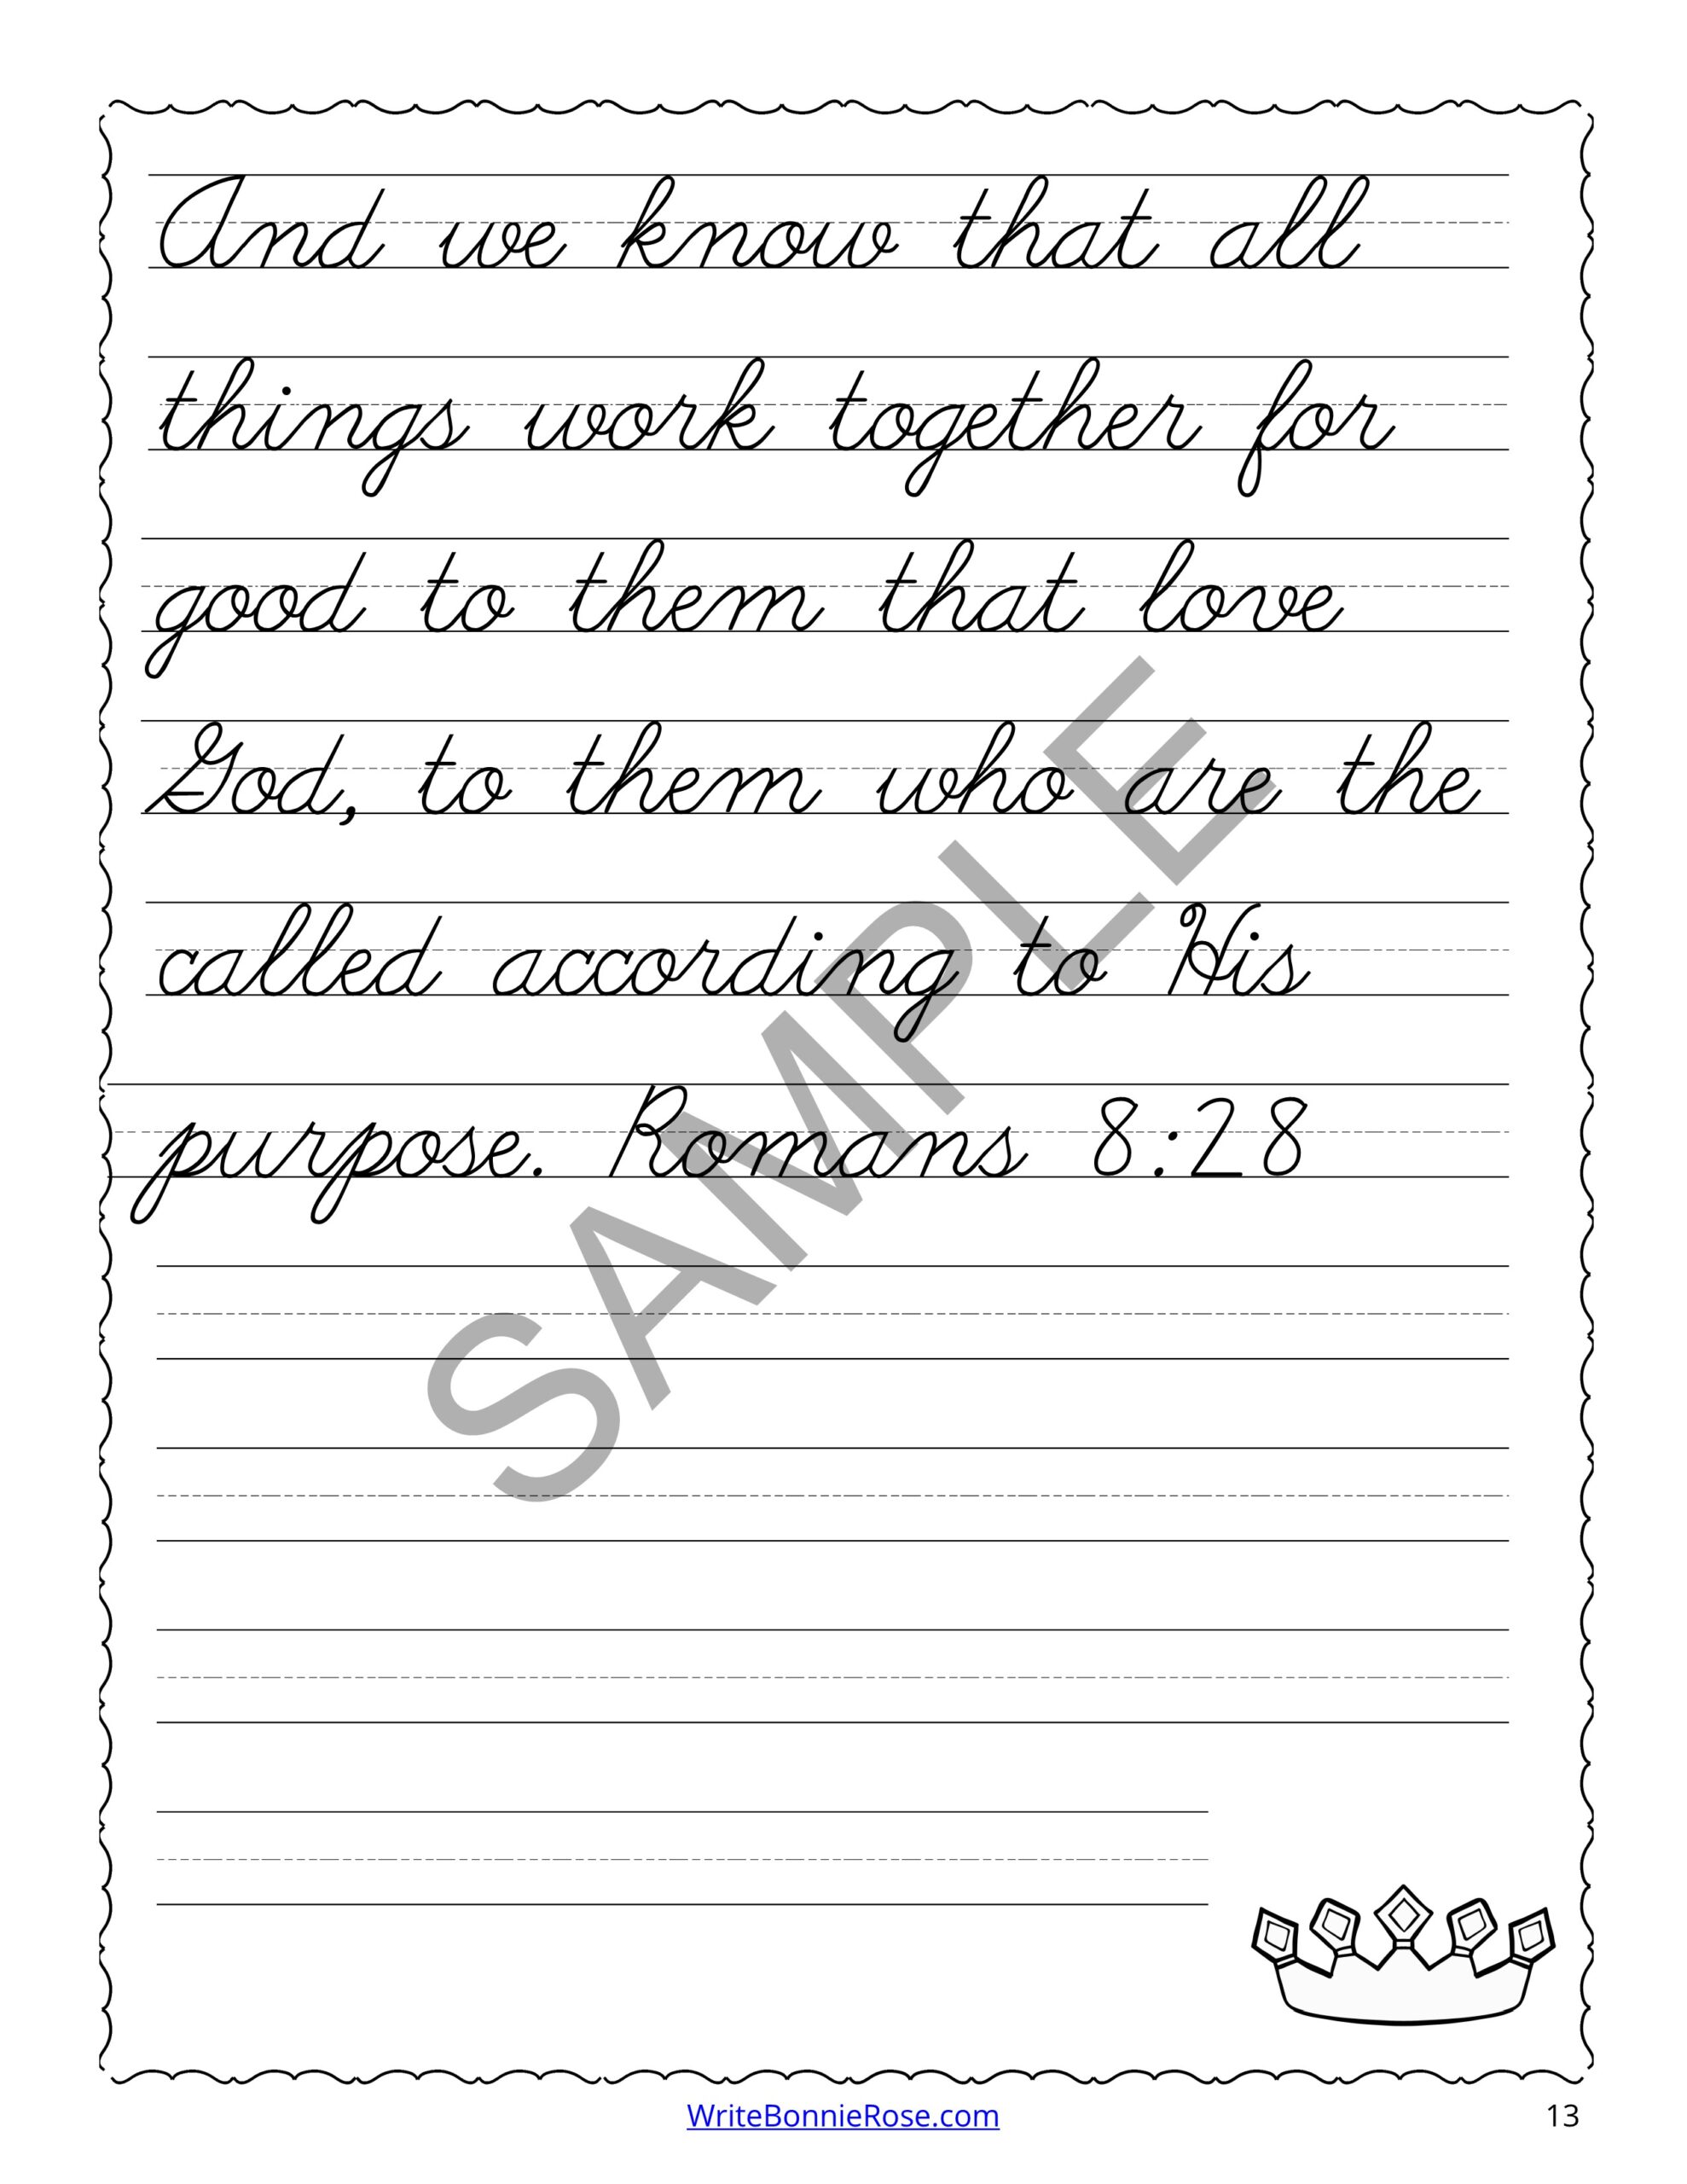 And we know that all
things work together for
good to them that love
God, to them who are the
called according to His
purpose. Romans 8:28
SAMPLE
WriteBonnieRose.com
13